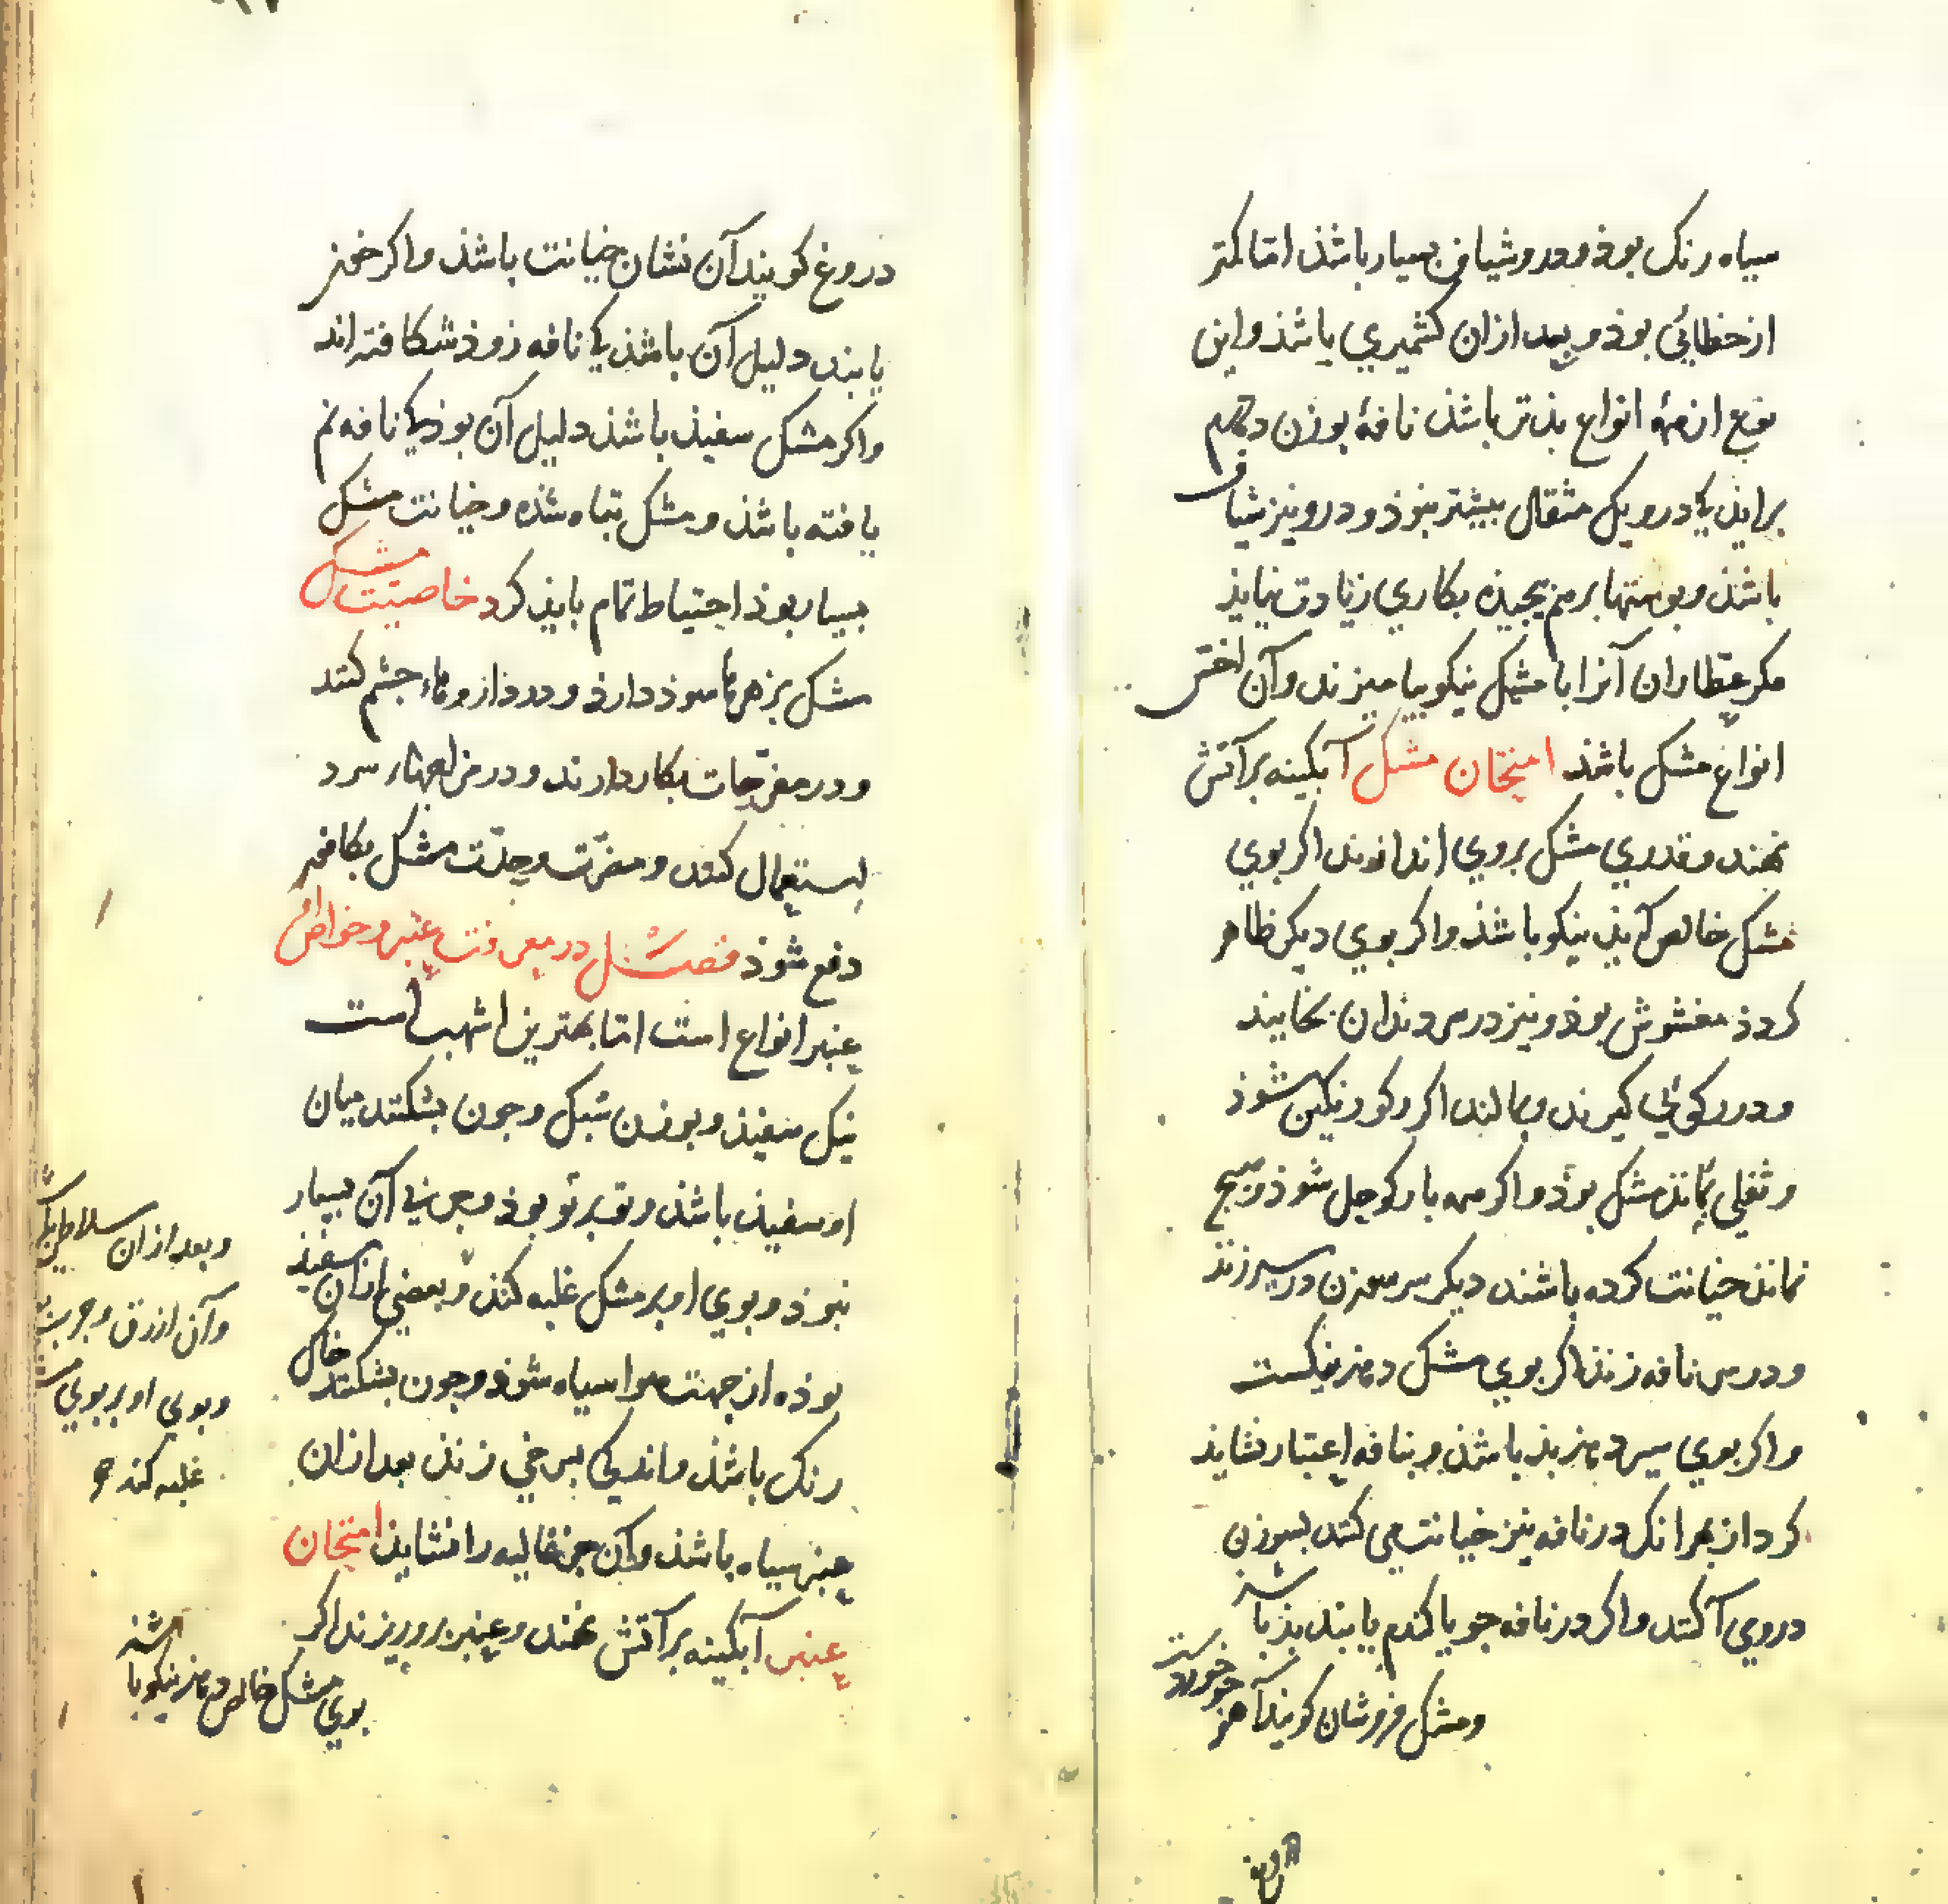 سیاه رنک بوذ و درو شیاف بسیار باشذ اما کمتر
از خطائی بوذ و بعد ازان کشمیری باشذ و این
نوع از همه انواع بذتر باشذ نافهٔ بوزن ده درم
برایذ کی درو یک مثقال بیشتر نبوذ و درو نیز شیاف
باشذ و بوستها برهم بیجیذه بکاری زیادت نیایذ
مکر عطاران آنرا با مشک نیکو بیامیزند و آن اخس
انواع مشک باشذ امتحان مشک آبکینه بر آتش
نهند و قدری مشک بروی اندازند اکر بوی
مشک خالص آیذ نیکو باشذ و اکر بوی دیکر ظاهر
کردذ مغشوش بوذ و نیز در سر دندان بخایند
و در رکوئی کیرند و بمالند اکر رکو رنکین شوذ
و ثفلی بماند مشک بوذ و اکر همه با رکو حل شوذ و هیچ
نماند خیانت کرده باشند دیکر سر سوزن در سیر زنند
و در سر نافه زنند اکر بوی مشک دهد نیکست
و اکر بوی سیر دهد بذ باشذ و بنافه اعتبار نشاید
کرد از بهر انک در نافه نیز خیانت می کنند بسوزن
دروی آکنند و اکر در نافه جو یا کندم یابند بذ باشذ
و مشک فروشان کویند آهو جو خوردست
دروغ کویند آن نشان خیانت باشذ و اکر خون
یابند دلیل آن باشذ کی نافه زوذ شکافته اند
و اکر مشک سفیذ باشذ دلیل آن بوذ کی نافه نم
یافته باشذ و مشک تباه شذه و خیانت مشک
بسیار بوذ احتیاط تمام بایذ کرد خاصیت مشک
مشک بزهرها سوذ دارذ و در داروهاء جشم کنند
و در مفرّحات بکار دارند و در مزاجهاء سرد
استعمال کنند و مضرّت و حدّت مشک بکافور
دفع شوذ فصل در معرفت عنبر و خواص آن
عنبر انواع است اما بهترین اشهب است
نیک سفیذ و بوزن سبک و جون بشکنند میان
او سفیذ باشذ و تو بر تو بوذ و جربی آن بسیار
نبوذ و بوی او بر مشک غلبه کند و بعضی ازان سفیذ
بوذه از جهت هوا سیاه شوذ و جون بشکنند خاک
رنک باشذ و اندکی بسرخی زند بعد ازان
عنبر سیاه باشذ و آن جز غالیه را نشایذ امتحان
عنبر آبکینه بر آتش نهند و عنبر برو ریزند اکر
بوی مشک خالص دهد نیکو باشذ
و بعد ازان سلاهطی
و آن ازرق و جرب
و بوی او بر بوی
غلبه کند